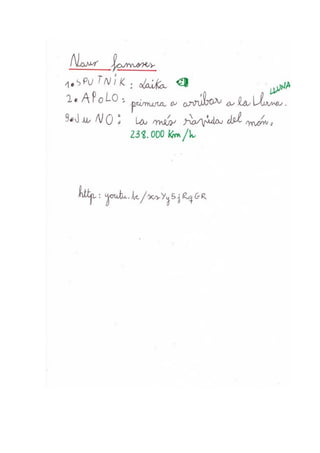 Naus famoses
1.SPUTNiK: Laika
LLUNA
2.APOLO: primera a arribar a la Lluna.
3.JuNO: La més ràpida del món.
238.000 Km/h
http: youtu.be/